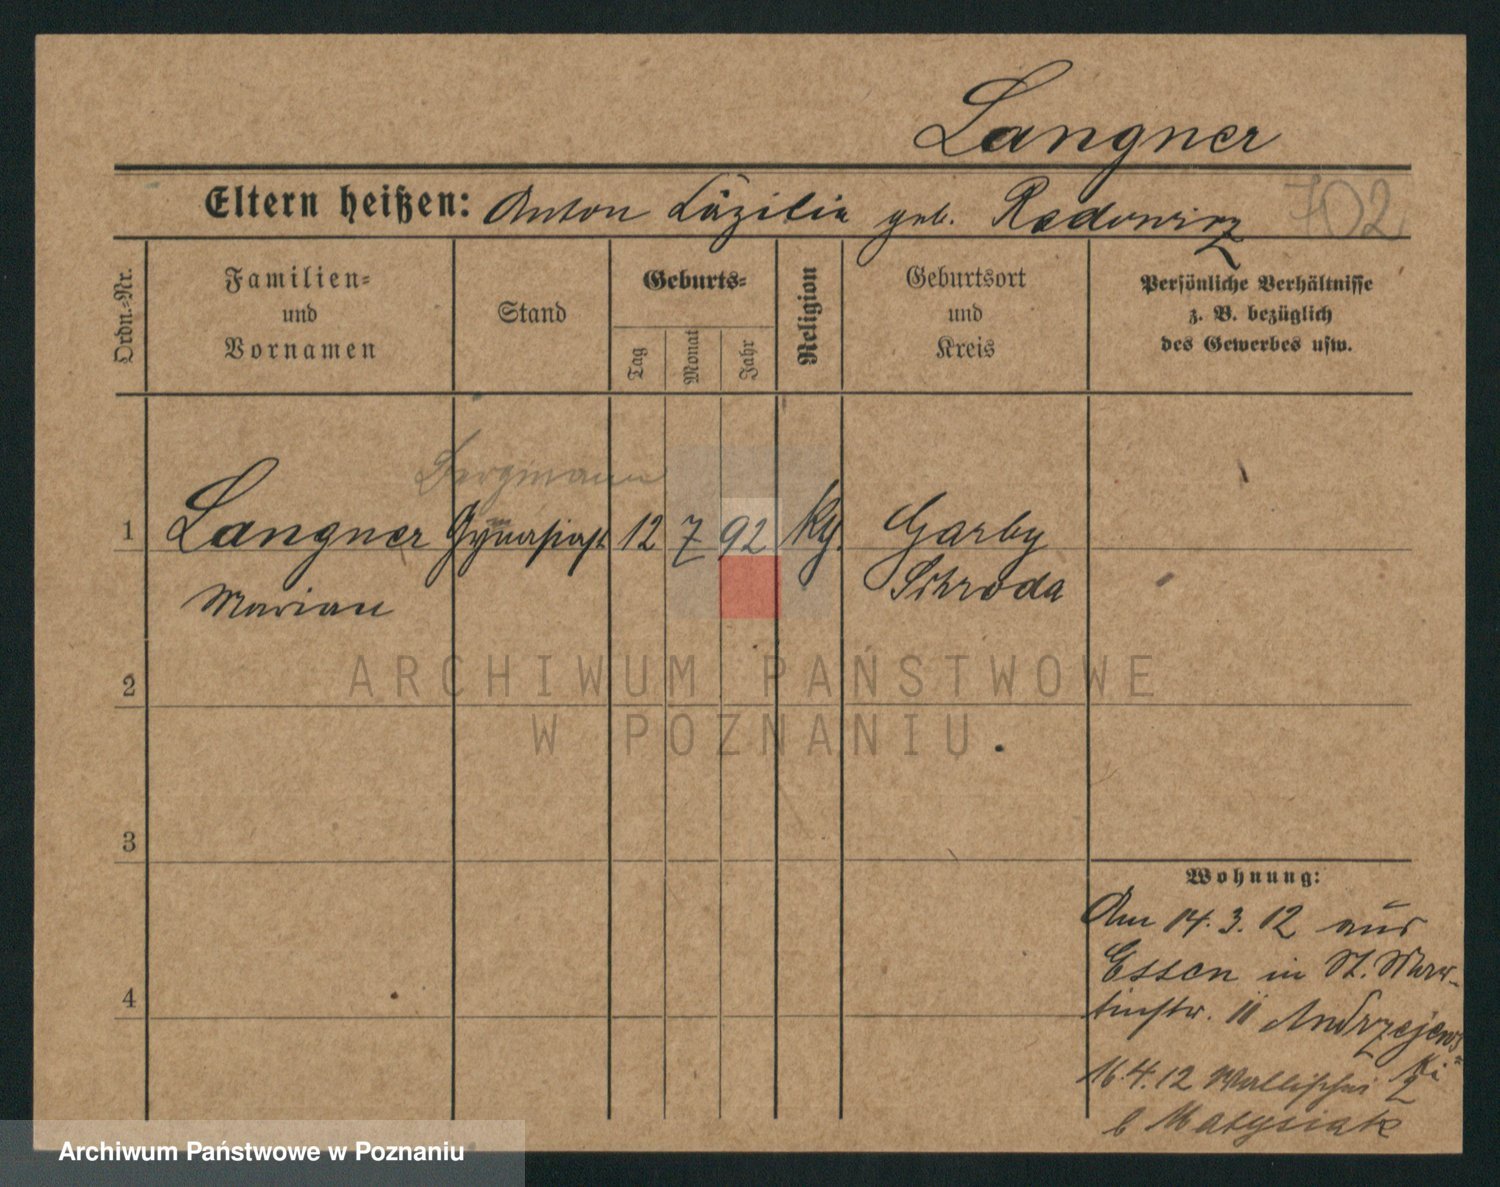 Langner
Eltern heißen: Anton Cäzilia geb. Radowicz
702
Ordn.-Nr.
Familien-
und
Vornamen
Stand
Geburts-
Tag
Monat
Jahr
Religion
Geburtsort
und
Kreis
Persönliche Verhältnisse
z. B. bezüglich
des Gewerbes usw.
Bergmann
1 Langner Gymnasiast 12 7 92 Garby
Marian Schroda
2
ARCHIWUM PAŃSTWOWE
W POZNANIU
3
4
Wohnung:
Am 14.3.12 aus
Essen in St. Mar-
tinstr. 11 Andrzejews-
ki
16.4.12 Wallischei 2
b Matysiak
Archiwum Państwowe w Poznaniu